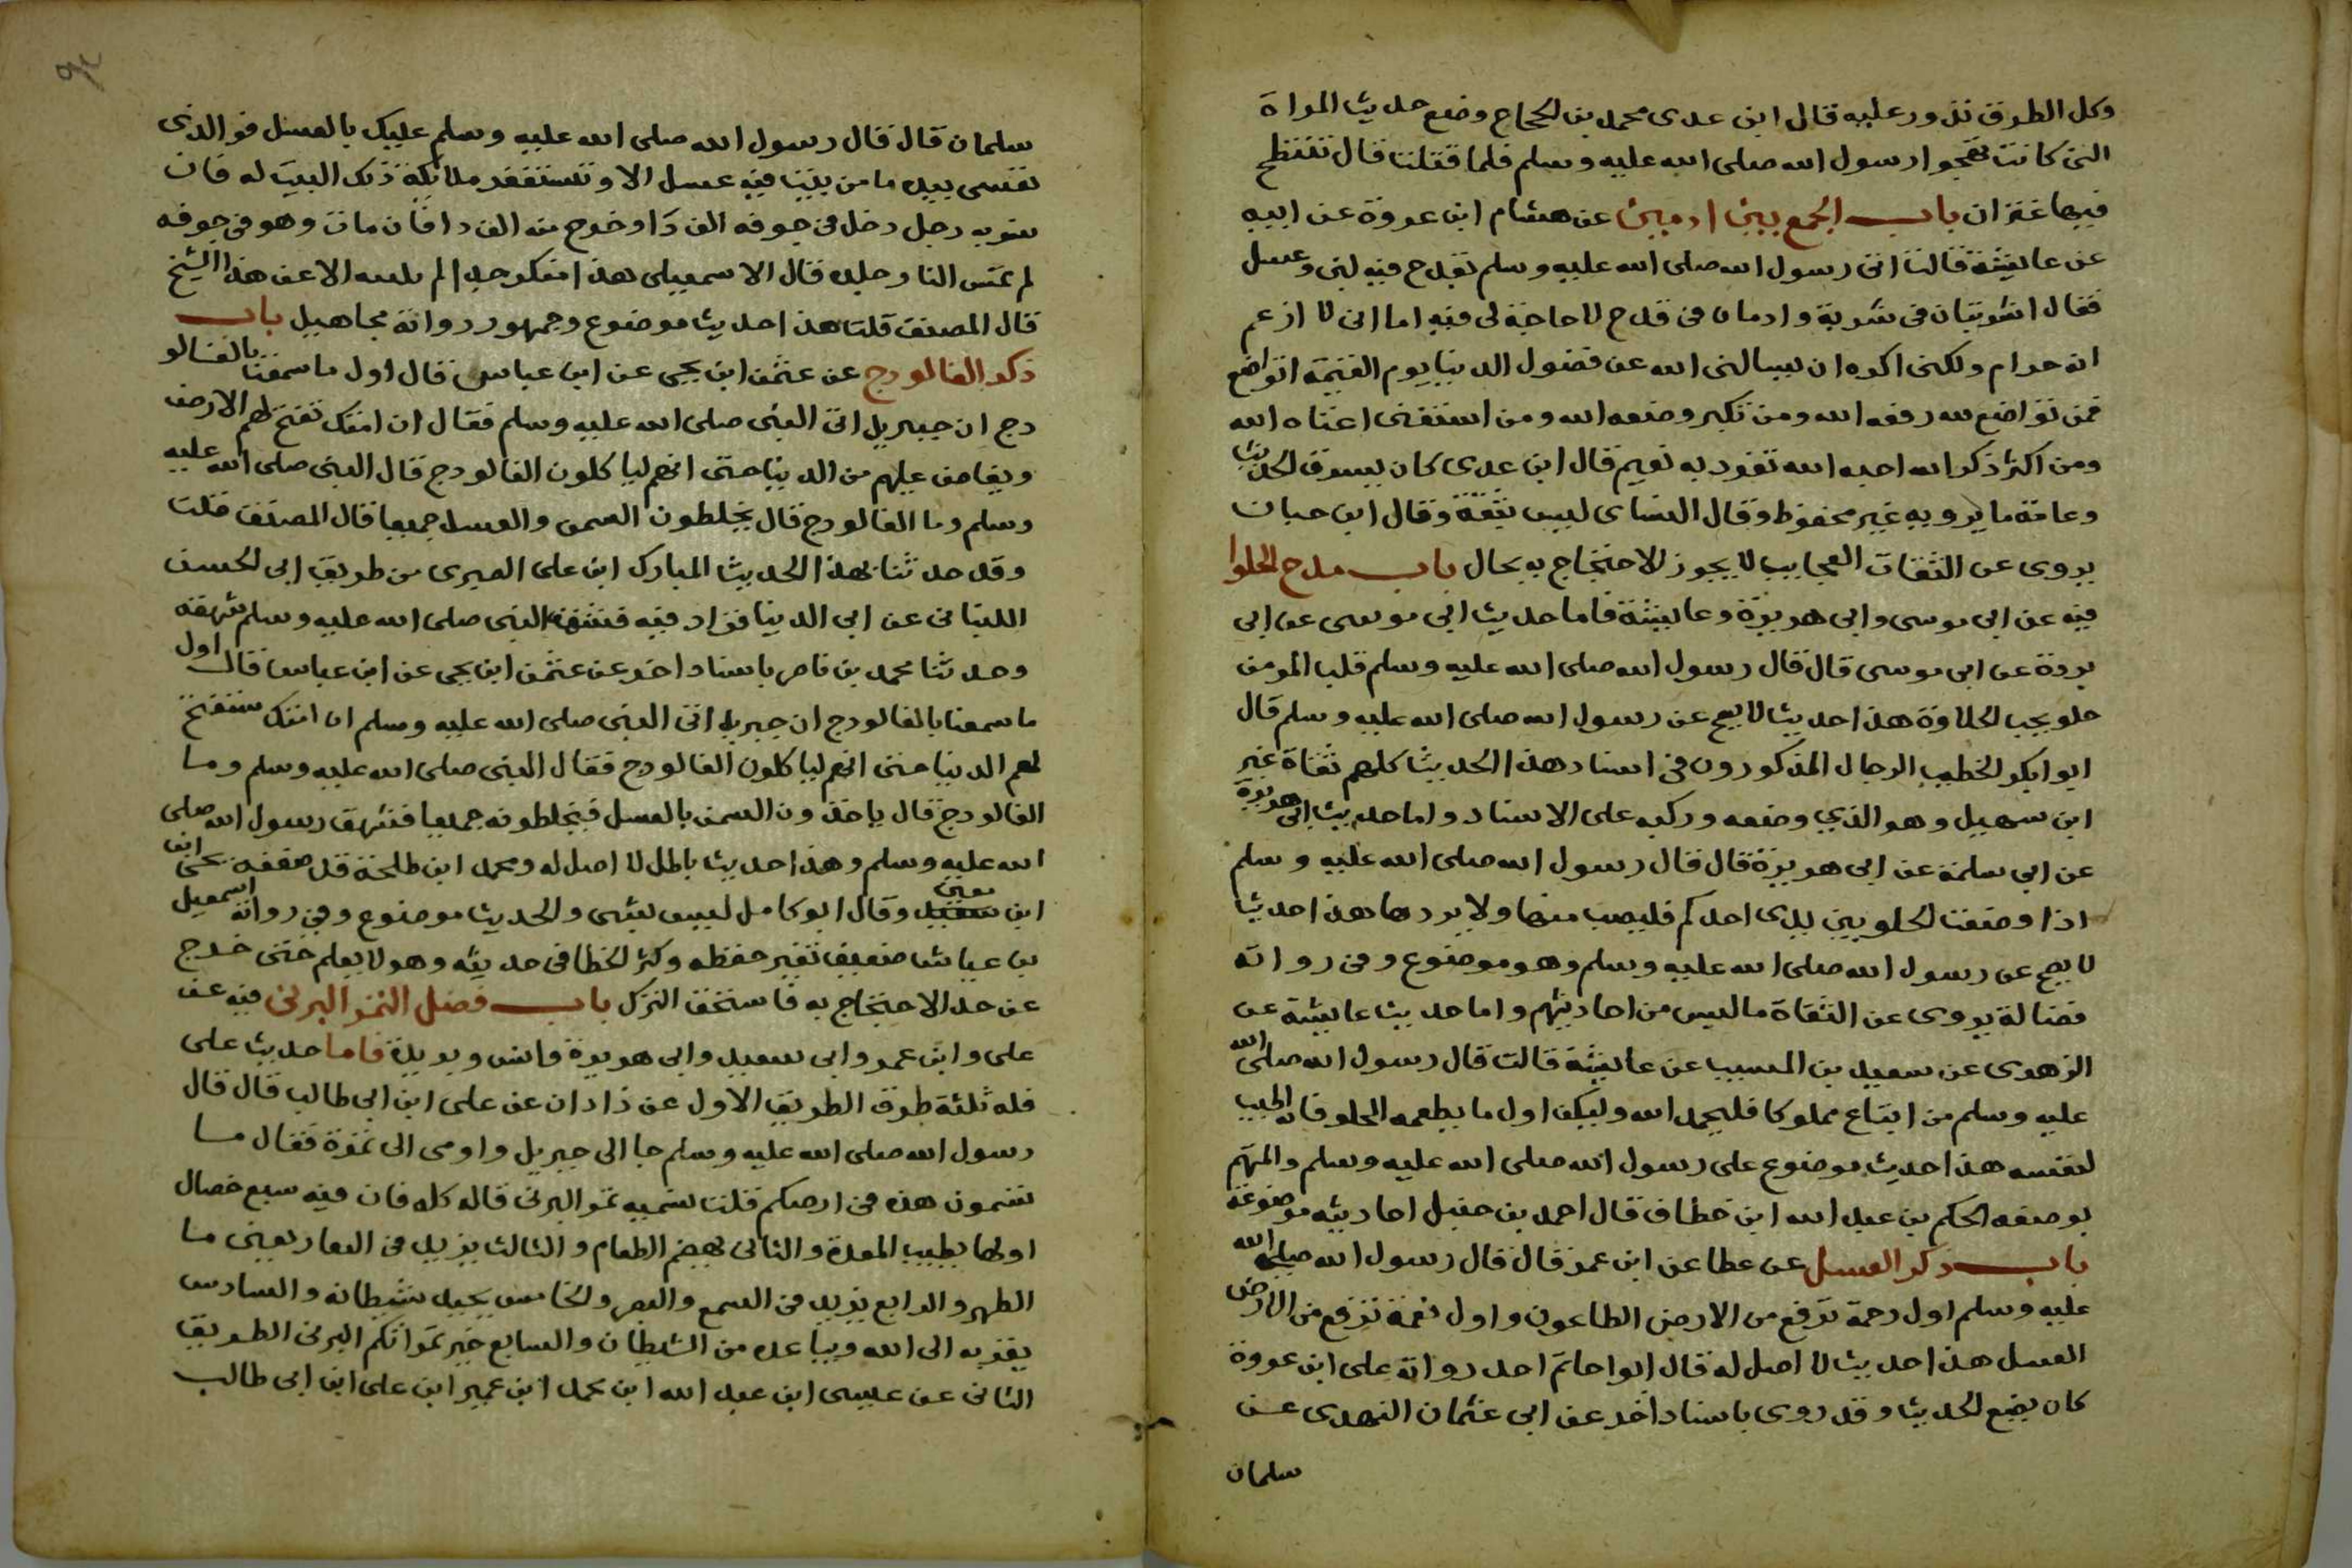 وكل الطرق تدور عليه قال ابن عدى محمد بن الحجاج وضع حديث المراة
التى كانت تهجوا رسول الله صلى الله عليه وسلم فلما قتلت قال تنتطح
فيها عنزان باب الجمع بين ادمين عن هشام ابن عروة عن ابيه
عن عايشة قالت اتى رسول الله صلى الله عليه وسلم بقدح فيه لبن وعسل
فقال اشربتان فى شربة وادمان فى قدح لا حاجة لى فيه اما انى لا ازعم
انه حرام ولكنى اكره ان يسالنى الله عن فضول الدنيا يوم القيمة اتواضع
فمن تواضع لله رفعه الله ومن تكبر وضعه الله ومن استغنى اغناه الله
ومن اكثر ذكر الله احبه الله تفرد به نعيم قال ابن عدى كان يسرق الحديث
وعامة ما يرويه غير محفوظ وقال النساى ليس بثقة وقال ابن حبان
يروى عن الثقات العجايب لا يجوز الاحتجاج به بحال باب مدح الحلوا
فيه عن ابى موسى وابى هريرة وعايشة فاما حديث ابى موسى عن ابى
بردة عن ابى موسى قال قال رسول الله صلى الله عليه وسلم قلب المومن
حلو يحب الحلاوة هذا حديث لا يصح عن رسول الله صلى الله عليه وسلم قال
ابو ابكر الخطيب الرجال المذكورون فى اسناد هذا الحديث كلهم ثقاة غير
ابن سهيل وهو الذي وضعه وركبه على الاسناد واما حديث ابى هريرة
عن ابى سلمة عن ابى هريرة قال قال رسول الله صلى الله عليه وسلم
اذا وضعت الحلو بين يدى احدكم فليصب منها ولا يردها هذا حديث
لا يصح عن رسول الله صلى الله عليه وسلم وهو موضوع وفى رواته
فضالة يروى عن الثقاة ما ليس من احاديثهم واما حديث عايشة عن
الزهرى عن سعيد بن المسيب عن عايشة قالت قال رسول الله صلى الله
عليه وسلم من ابتاع مملوكا فليحمد الله وليكن اول ما يطعمه الحلو فانه اطيب
لنفسه هذا حديث موضوع على رسول الله صلى الله عليه وسلم والمتهم
بوضعه الحكم بن عبد الله ابن خطاف قال احمد بن حنبل احاديثه موضوعة
باب ذكر العسل عن عطا عن ابن عمر قال قال رسول الله صلى الله
عليه وسلم اول رحمة ترفع من الارض الطاعون واول نعمة ترفع من الارض
العسل هذا حديث لا اصل له قال ابوا حاتم احد رواته على ابن عروة
كان يضع الحديث وقد روى باسناد اخر عن ابى عثمان النهدى عن
سلمان
سلمان قال قال رسول الله صلى الله عليه وسلم عليك بالعسل فوالذى
نفسى بيده ما من بيت فيه عسل الا وتستغفر ملائكة ذلك البيت له فان
شربه رجل دخل فى جوفه الف دوا وخرج منه الف دا فان مات وهو فى جوفه
لم تمس النار جلده قال الاسمعيلى هذا منكر جدا لم الا عن هذا الشيخ
قال المصنف قلت هذا حديث موضوع وجمهور رواته مجاهيل باب
ذكر الفالودج عن عثمن ابن يحيى عن ابن عباس قال اول ما سمعنا بالفالو
دج ان جبريل اتى النبى صلى الله عليه وسلم فقال ان امتك تفتح لهم الارض
ويفاض عليهم من الدنيا حتى انهم لياكلون الفالودج قال النبى صلى الله عليه
وسلم وما الفالودج قال يخلطون السمن والعسل جميعا قال المصنف قلت
وقد حدثنا بهذا الحديث المبارك ابن على الصيرى من طريق ابى الحسن
اللبنانى عن ابى الدنيا فزاد فيه فشهق النبى صلى الله عليه وسلم شهقة
وحدثنا محمد بن ناصر باسناد اخر عن عثمن ابن يحيى عن ابن عباس قال اول
ما سمعنا بالفالودج ان جبريل اتى النبى صلى الله عليه وسلم ان امتك ستفتح
لهم الدنيا حتى انهم لياكلون الفالودج فقال النبى صلى الله عليه وسلم وما
الفالودج قال ياخذون السمن بالعسل فيخلطونه جميعا فشهق رسول الله صلى
الله عليه وسلم وهذا حديث باطل لا اصل له ومحمد ابن طلحة قد ضعفه يحيى ابن
ابن معين وقال ابو كامل ليس بشى والحديث موضوع وفى رواته اسمعيل
بن عياش ضعيف تغير حفظه وكثر الخطا فى حديثه وهو لا يعلم حتى خرج
عن حد الاحتجاج به فاستحق الترك باب فضل التمر البرنى فيه عن
على وابن عمر وابى سعيد وابى هريرة وانس وبريدة فاما حديث على
فله ثلثة طرق الطريق الاول عن زادان عن على ابن ابى طالب قال قال
رسول الله صلى الله عليه وسلم جا الى جبريل واومى الى تمرة فقال ما
تسمون هذه فى ارضكم قلت نسميه تمر البرنى قال كله فان فيه سبع خصال
اولها يطيب المعدة والثانى يهضم الطعام والثالث يزيد فى الفقار يعنى ما
الظهر والرابع يزيد فى السمع والبصر والخامس يخبل شيطانه والسادس
يقربه الى الله ويباعده من الشيطان والسابع خير تمراتكم البرنى الطريق
الثانى عن عيسى ابن عبد الله ابن محمد ابن عمير ابن على ابن ابى طالب